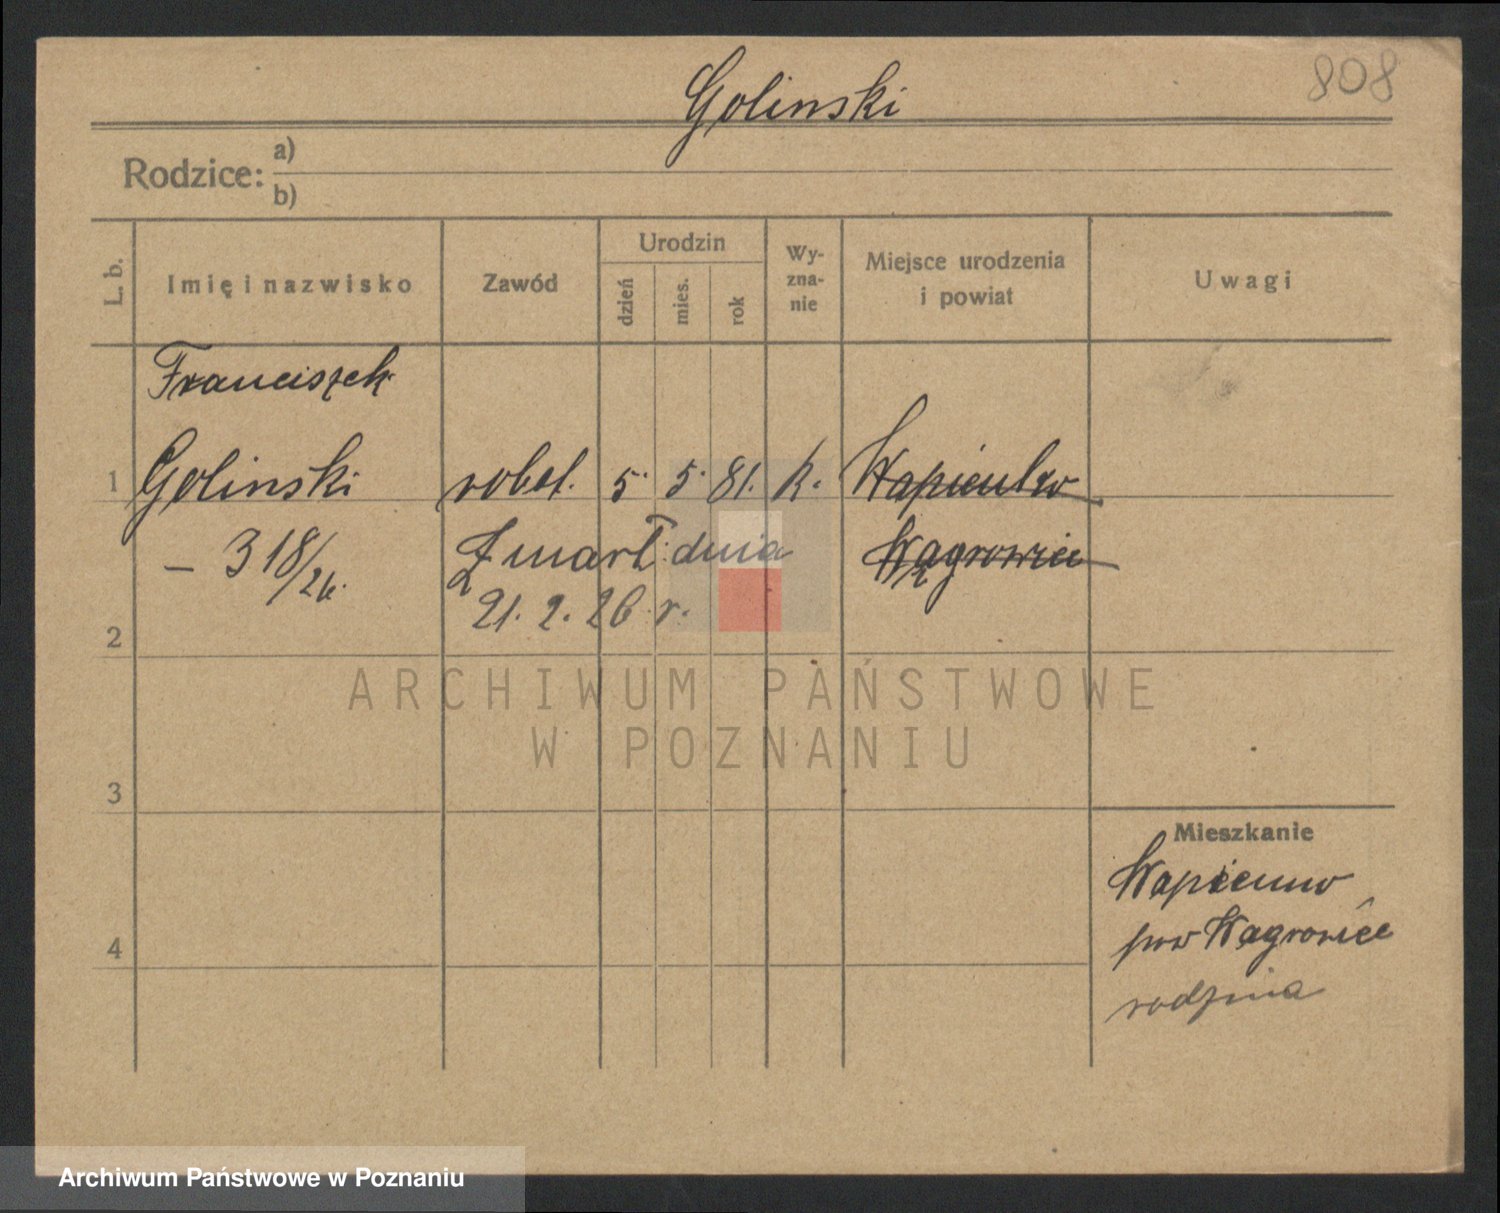 808
Golinski
Rodzice: a)
b)
L. b.
Imię i nazwisko
Zawód
Urodzin
dzień
mies.
rok
Wy-
zna-
nie
Miejsce urodzenia
i powiat
Uwagi
Franciszek
1 Golinski robot. 5. 5. 81. k. Wapienno
— 318/26. Zmarł dnia Wągrowiec
21. 2. 26 r.
2
ARCHIWUM PAŃSTWOWE
W POZNANIU
3
Mieszkanie
Wapienno
pow Wągrowiec
4
rodzina
Archiwum Państwowe w Poznaniu